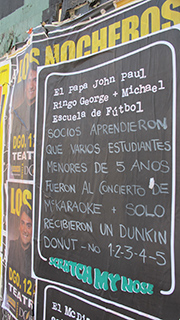 LOS NOCHEROS
El Papa John Paul
Ringo George + Michael
Escuela de Fútbol
SOCIOS APRENDIERON
QUE VARIOS ESTUDIANTES
MENORES DE 5 AÑOS
FUERON AL CONCIERTO DE
McKARAOKE + SOLO
RECIBIERON UN DUNKIN
DONUT - NO 1-2-3-4-5
SCRATCH MY NOSE
DGO. 12
TEATR
LOS
DGO. 12
TEAT
El McDi